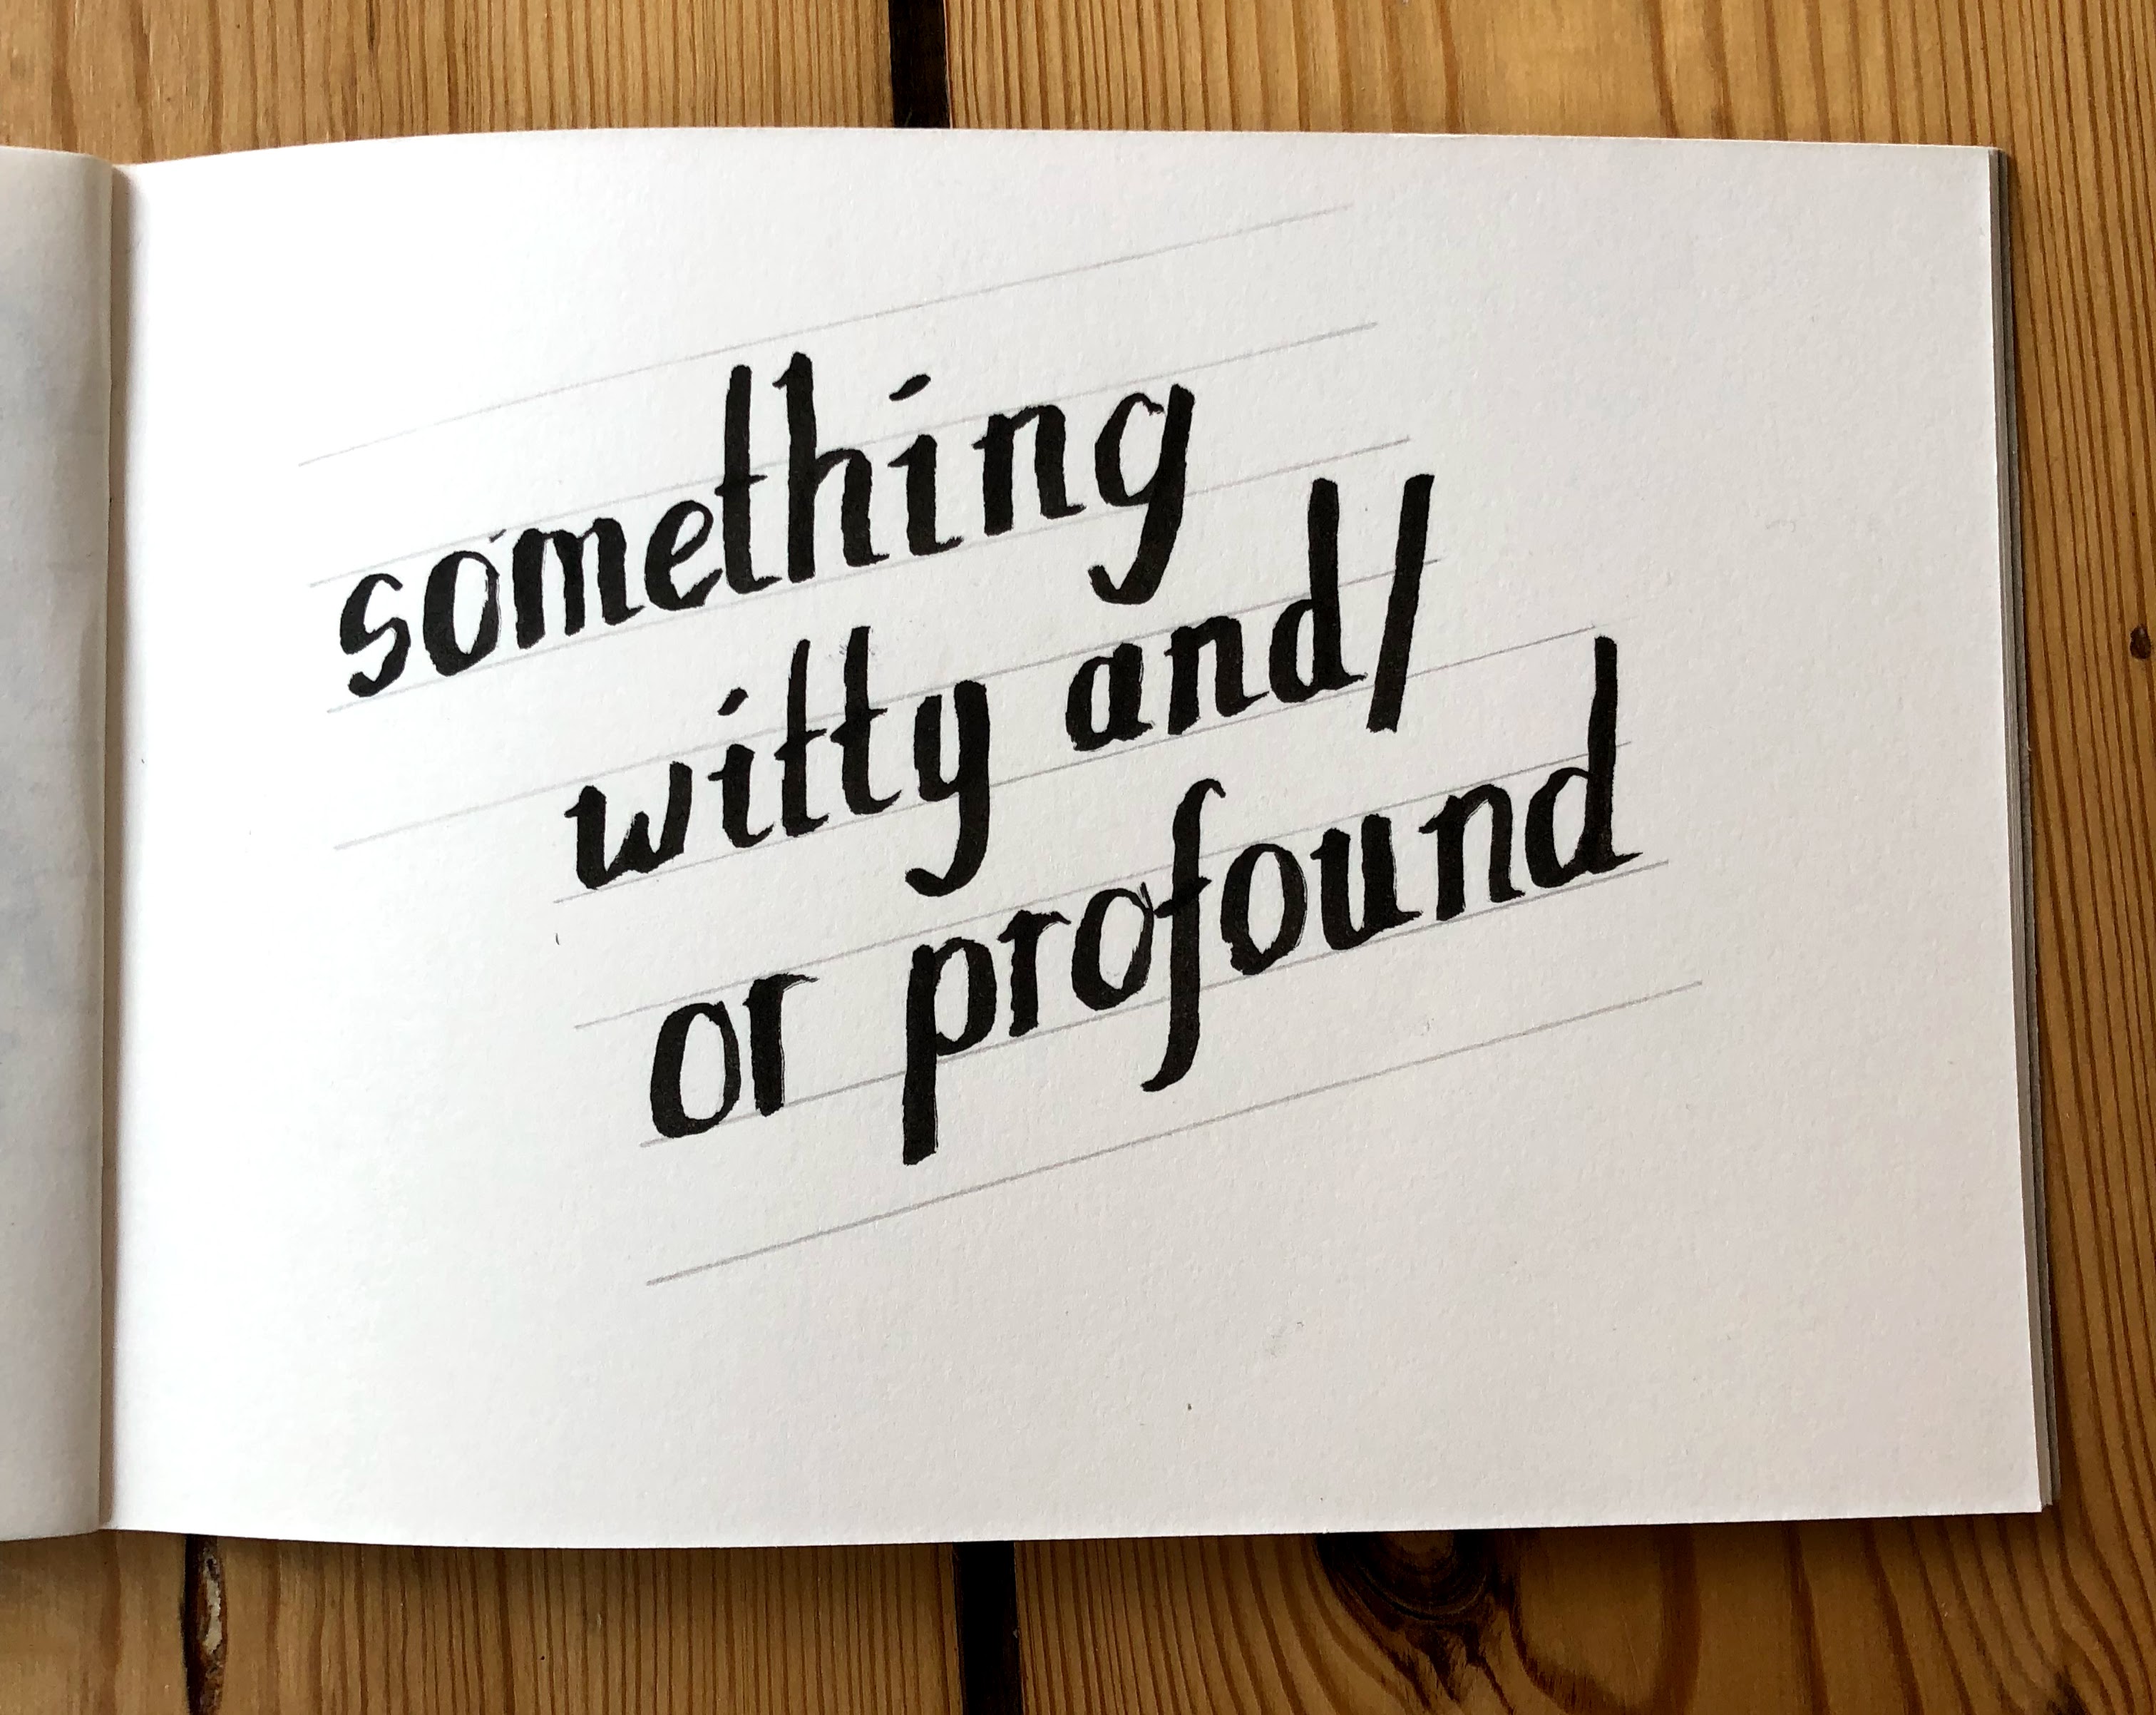 something
witty and/
or profound